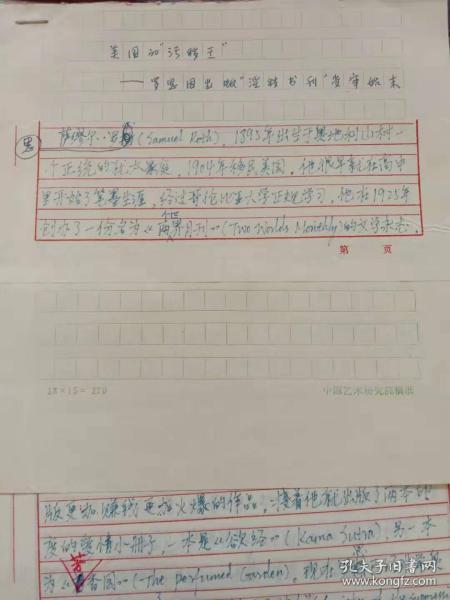 美国的“淫秽王”
——罗思因出版“淫秽书刊”受审始末
萨缪尔·罗思(Samuel Roth), 1895年出生于奥地利山村一
个正统的犹太家庭, 1904年移民美国。他很早就在高中
里开始了笔墨生涯, 经过哥伦比亚大学正规学习, 他在1925年
创办了一份名为《两世界月刊》(Two Worlds Monthly)的文学杂志,
第 页
18×15=270
中国艺术研究院稿纸
版更加赚钱更加火爆的作品,接着他就出版了两本印
度的爱情小册子,一本是《欲经》(Kama Sutra), 另一本
为《芳香园》(The Perfumed Garden), 现在
孔夫子旧书网